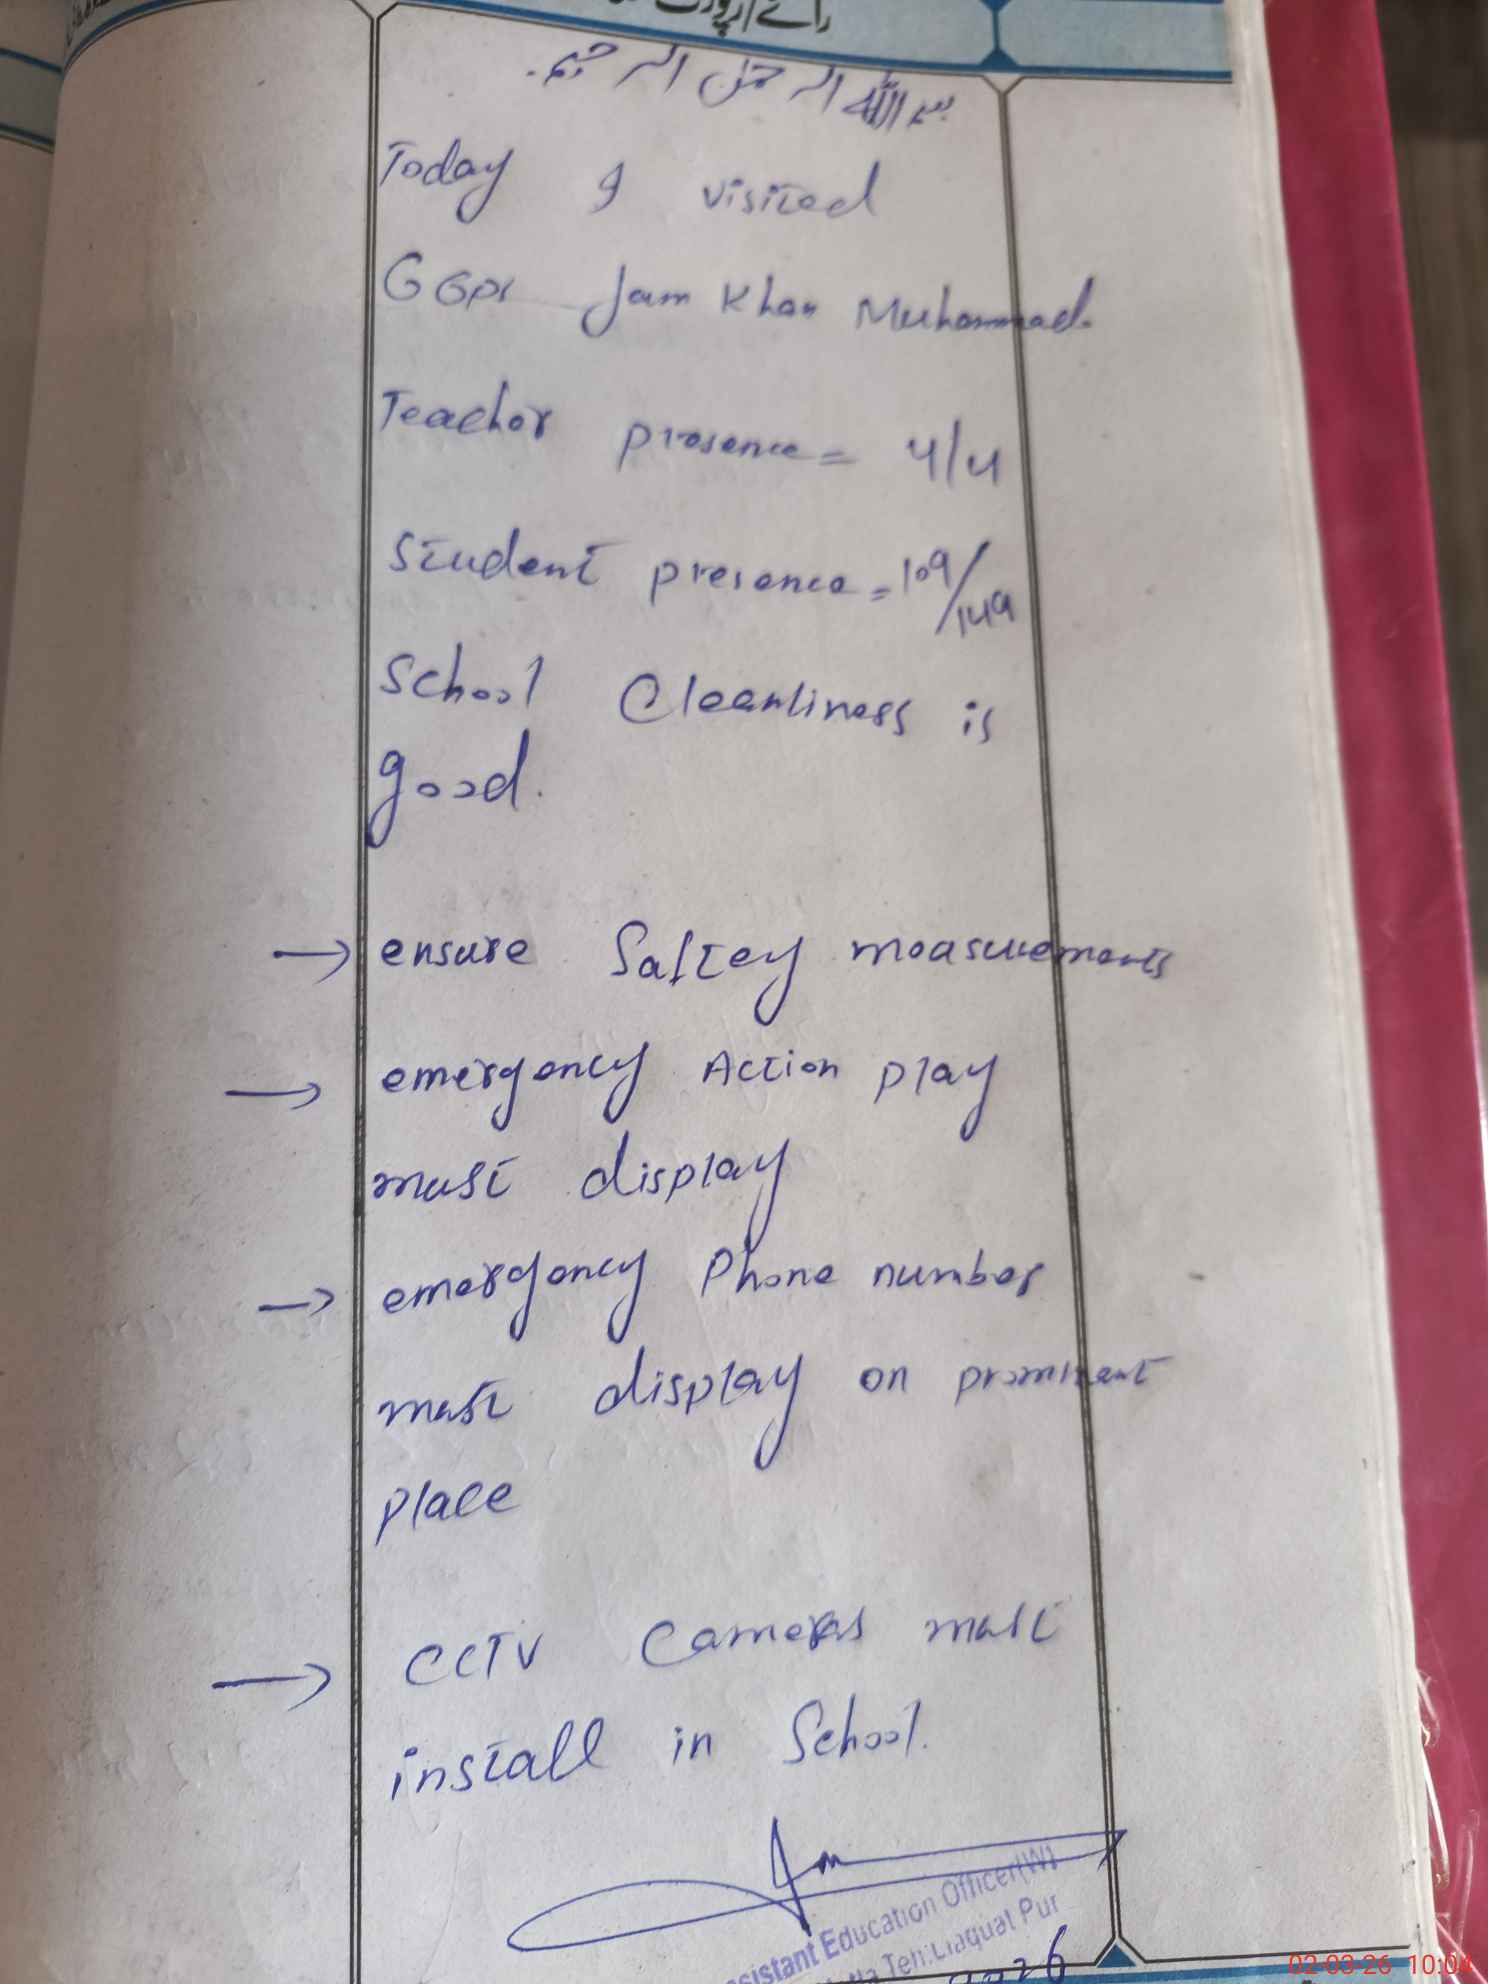 رائے/رپورٹ
بسم اللہ الرحمٰن الرحیم۔
Today I visited
GGPS Jam Khan Muhammad.
Teacher presence = 4/4
Student presence = 109/149
School Cleanliness is
good.
→ ensure Saftey measurements
→ emergency Action play
must display
→ emergency Phone number
must display on prominent
place
→ CCTV Cameras must
install in School.
sistant Education Officer(W)
Teh: Liaquat Pur
2026
02-03-26 10:04